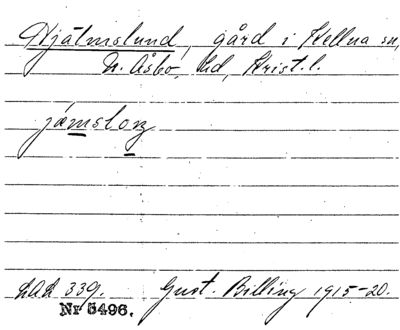 Hjälmslund, gård i Källna sn,
N. Åsbo, hd, Krist. l.
jæmsloŋ
LAL 339. Gust. Billing 1915-20.
Nr 5496.